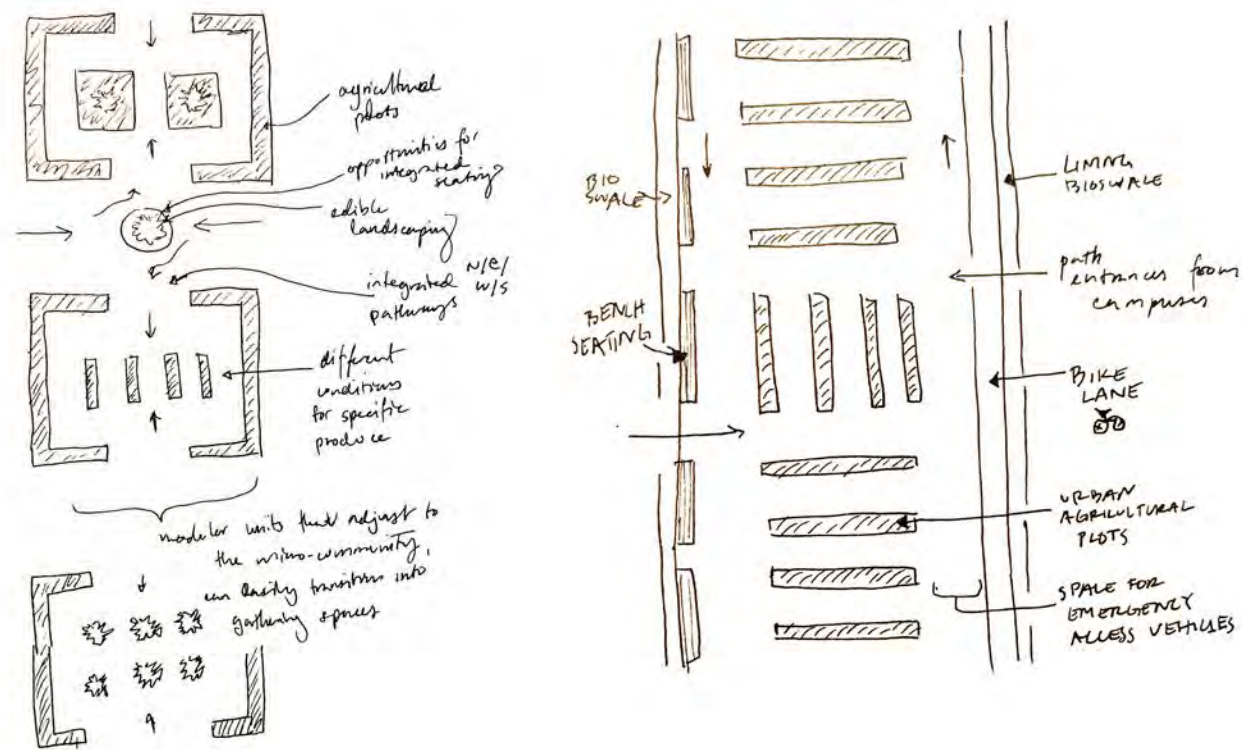 agricultural
plots
opportunities for
integrated
seating
edible
landscaping
integrated N/E/
pathways W/S
different
conditions
for specific
produce
modular units that adjust to
the micro-community,
can easily transition into
gathering spaces
BIO
SWALE
BENCH
SEATING
LINING
BIOSWALE
path
entrances from
campuses
BIKE
LANE
URBAN
AGRICULTURAL
PLOTS
SPACE FOR
EMERGENCY
ACCESS VEHICLES